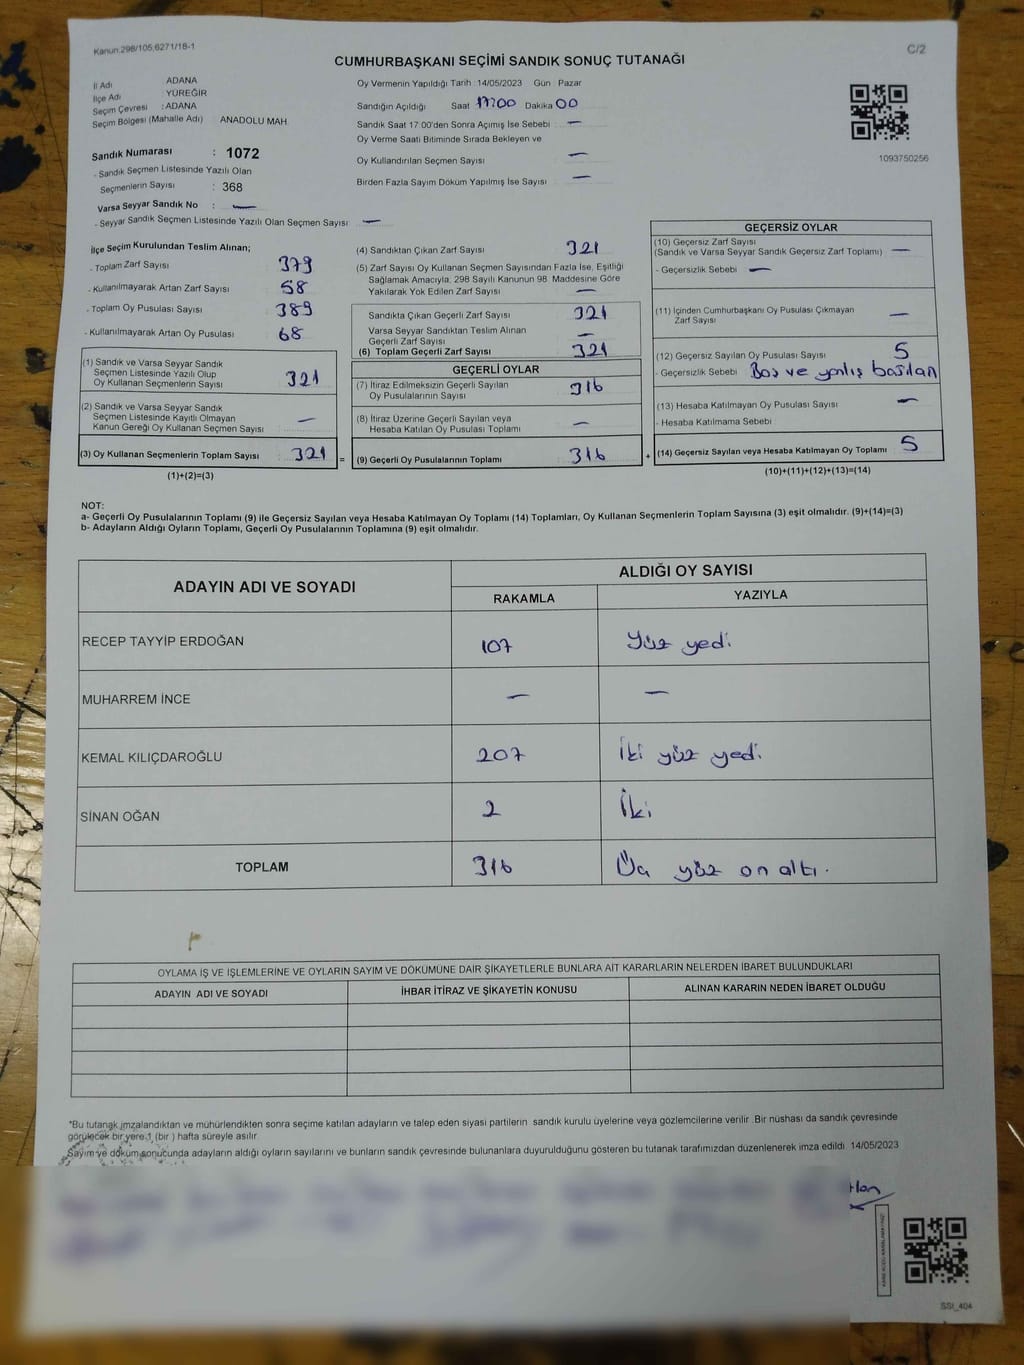 Kanun.298/105,6271/18-1
C/2
CUMHURBAŞKANI SEÇİMİ SANDIK SONUÇ TUTANAĞI
İl Adı ADANA
İlçe Adı YÜREĞİR
Seçim Çevresi : ADANA
Seçim Bölgesi (Mahalle Adı) ANADOLU MAH.
Sandık Numarası : 1072
- Sandık Seçmen Listesinde Yazılı Olan
Seçmenlerin Sayısı : 368
Varsa Seyyar Sandık No : —
- Seyyar Sandık Seçmen Listesinde Yazılı Olan Seçmen Sayısı : —
Oy Vermenin Yapıldığı Tarih : 14/05/2023 Gün : Pazar
Sandığın Açıldığı Saat 17:00 Dakika 00
Sandık Saat 17:00'den Sonra Açımış İse Sebebi : —
Oy Verme Saati Bitiminde Sırada Bekleyen ve
Oy Kullandırılan Seçmen Sayısı —
Birden Fazla Sayım Döküm Yapılmış İse Sayısı : —
1093750256
İlçe Seçim Kurulundan Teslim Alınan;
- Toplam Zarf Sayısı 379
- Kullanılmayarak Artan Zarf Sayısı 58
- Toplam Oy Pusulası Sayısı 389
- Kullanılmayarak Artan Oy Pusulası 68
(1) Sandık ve Varsa Seyyar Sandık
Seçmen Listesinde Yazılı Olup
Oy Kullanan Seçmenlerin Sayısı : 321
(2) Sandık ve Varsa Seyyar Sandık
Seçmen Listesinde Kayıtlı Olmayan
Kanun Gereği Oy Kullanan Seçmen Sayısı : —
(3) Oy Kullanan Seçmenlerin Toplam Sayısı : 321
(1)+(2)=(3)
(4) Sandıktan Çıkan Zarf Sayısı 321
(5) Zarf Sayısı Oy Kullanan Seçmen Sayısından Fazla İse, Eşitliği
Sağlamak Amacıyla, 298 Sayılı Kanunun 98. Maddesine Göre
Yakılarak Yok Edilen Zarf Sayısı —
Sandıkta Çıkan Geçerli Zarf Sayısı 321
Varsa Seyyar Sandıktan Teslim Alınan
Geçerli Zarf Sayısı —
(6) Toplam Geçerli Zarf Sayısı 321
GEÇERLİ OYLAR
(7) İtiraz Edilmeksizin Geçerli Sayılan
Oy Pusulalarının Sayısı 316
(8) İtiraz Üzerine Geçerli Sayılan veya
Hesaba Katılan Oy Pusulası Toplamı —
= (9) Geçerli Oy Pusulalarının Toplamı 316
GEÇERSİZ OYLAR
(10) Geçersiz Zarf Sayısı
(Sandık ve Varsa Seyyar Sandık Geçersiz Zarf Toplamı) —
- Geçersizlik Sebebi —
(11) İçinden Cumhurbaşkanı Oy Pusulası Çıkmayan
Zarf Sayısı —
(12) Geçersiz Sayılan Oy Pusulası Sayısı 5
- Geçersizlik Sebebi Boş ve yanlış basılan
(13) Hesaba Katılmayan Oy Pusulası Sayısı —
- Hesaba Katılmama Sebebi
+ (14) Geçersiz Sayılan veya Hesaba Katılmayan Oy Toplamı 5
(10)+(11)+(12)+(13)=(14)
NOT:
a- Geçerli Oy Pusulalarının Toplamı (9) ile Geçersiz Sayılan veya Hesaba Katılmayan Oy Toplamı (14) Toplamları, Oy Kullanan Seçmenlerin Toplam Sayısına (3) eşit olmalıdır. (9)+(14)=(3)
b- Adayların Aldığı Oyların Toplamı, Geçerli Oy Pusulalarının Toplamına (9) eşit olmalıdır.
ADAYIN ADI VE SOYADI ALDIĞI OY SAYISI
RAKAMLA YAZIYLA
RECEP TAYYİP ERDOĞAN 107 Yüz yedi
MUHARREM İNCE — —
KEMAL KILIÇDAROĞLU 207 İki yüz yedi
SİNAN OĞAN 2 İki
TOPLAM 316 Üç yüz on altı.
OYLAMA İŞ VE İŞLEMLERİNE VE OYLARIN SAYIM VE DÖKÜMÜNE DAİR ŞİKAYETLERLE BUNLARA AİT KARARLARIN NELERDEN İBARET BULUNDUKLARI
ADAYIN ADI VE SOYADI İHBAR İTİRAZ VE ŞİKAYETİN KONUSU ALINAN KARARIN NEDEN İBARET OLDUĞU
*Bu tutanak imzalandıktan ve mühürlendikten sonra seçime katılan adayların ve talep eden siyasi partilerin sandık kurulu üyelerine veya gözlemcilerine verilir. Bir nüshası da sandık çevresinde
görülecek bir yere 1 (bir ) hafta süreyle asılır.
Sayım ve döküm sonucunda adayların aldığı oyların sayılarını ve bunların sandık çevresinde bulunanlara duyurulduğunu gösteren bu tutanak tarafımızdan düzenlenerek imza edildi. 14/05/2023
SSI_404